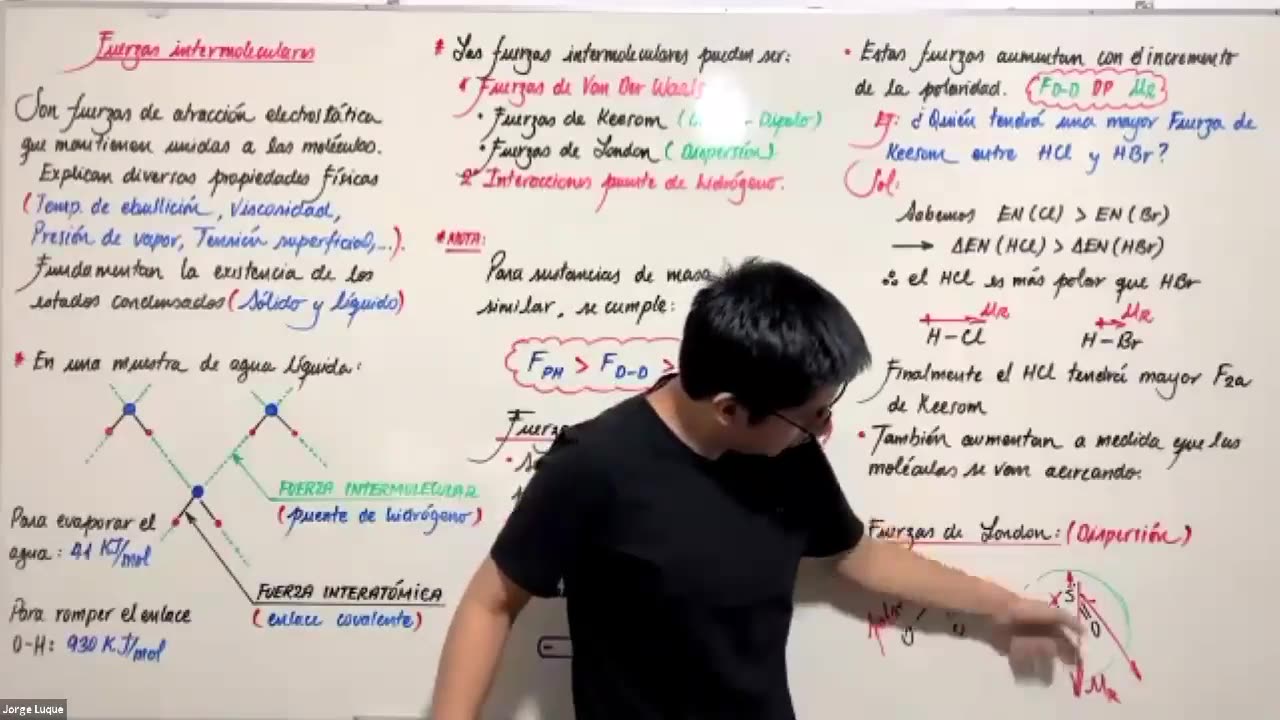 Fuerzas intermoleculares
Son fuerzas de atracción electrostática
que mantienen unidas a las moléculas.
Explican diversas propiedades físicas
(Temp. de ebullición, Viscosidad,
Presión de vapor, Tensión superficial,...).
Fundamentan la existencia de los
estados condensados (Sólido y líquido)
* En una muestra de agua líquida:
FUERZA INTERMOLECULAR
(puente de hidrógeno)
Para evaporar el
agua: 41 KJ/mol
FUERZA INTERATÓMICA
(enlace covalente)
Para romper el enlace
O-H: 930 KJ/mol
* Las fuerzas intermoleculares pueden ser:
Fuerzas de Van Der Waals
• Fuerzas de Keesom ( - Dipolo)
• Fuerzas de London (Dispersión)
2° Interacciones puente de hidrógeno.
* NOTA:
Para sustancias de masa
similar, se cumple:
F_PH > F_D-D >
• Estas fuerzas aumentan con el incremento
de la polaridad. F_D-D DP μR
Ej: ¿Quién tendrá una mayor Fuerza de
Keesom entre HCl y HBr?
Sol:
Sabemos EN(Cl) > EN(Br)
→ ΔEN(HCl) > ΔEN(HBr)
∴ el HCl es más polar que HBr
μR μR
H-Cl H-Br
Finalmente el HCl tendrá mayor Fza
de Keesom
• También aumentan a medida que las
moléculas se van acercando.
Fuerzas de London: (Dispersión)
S
O
μR
Jorge Luque